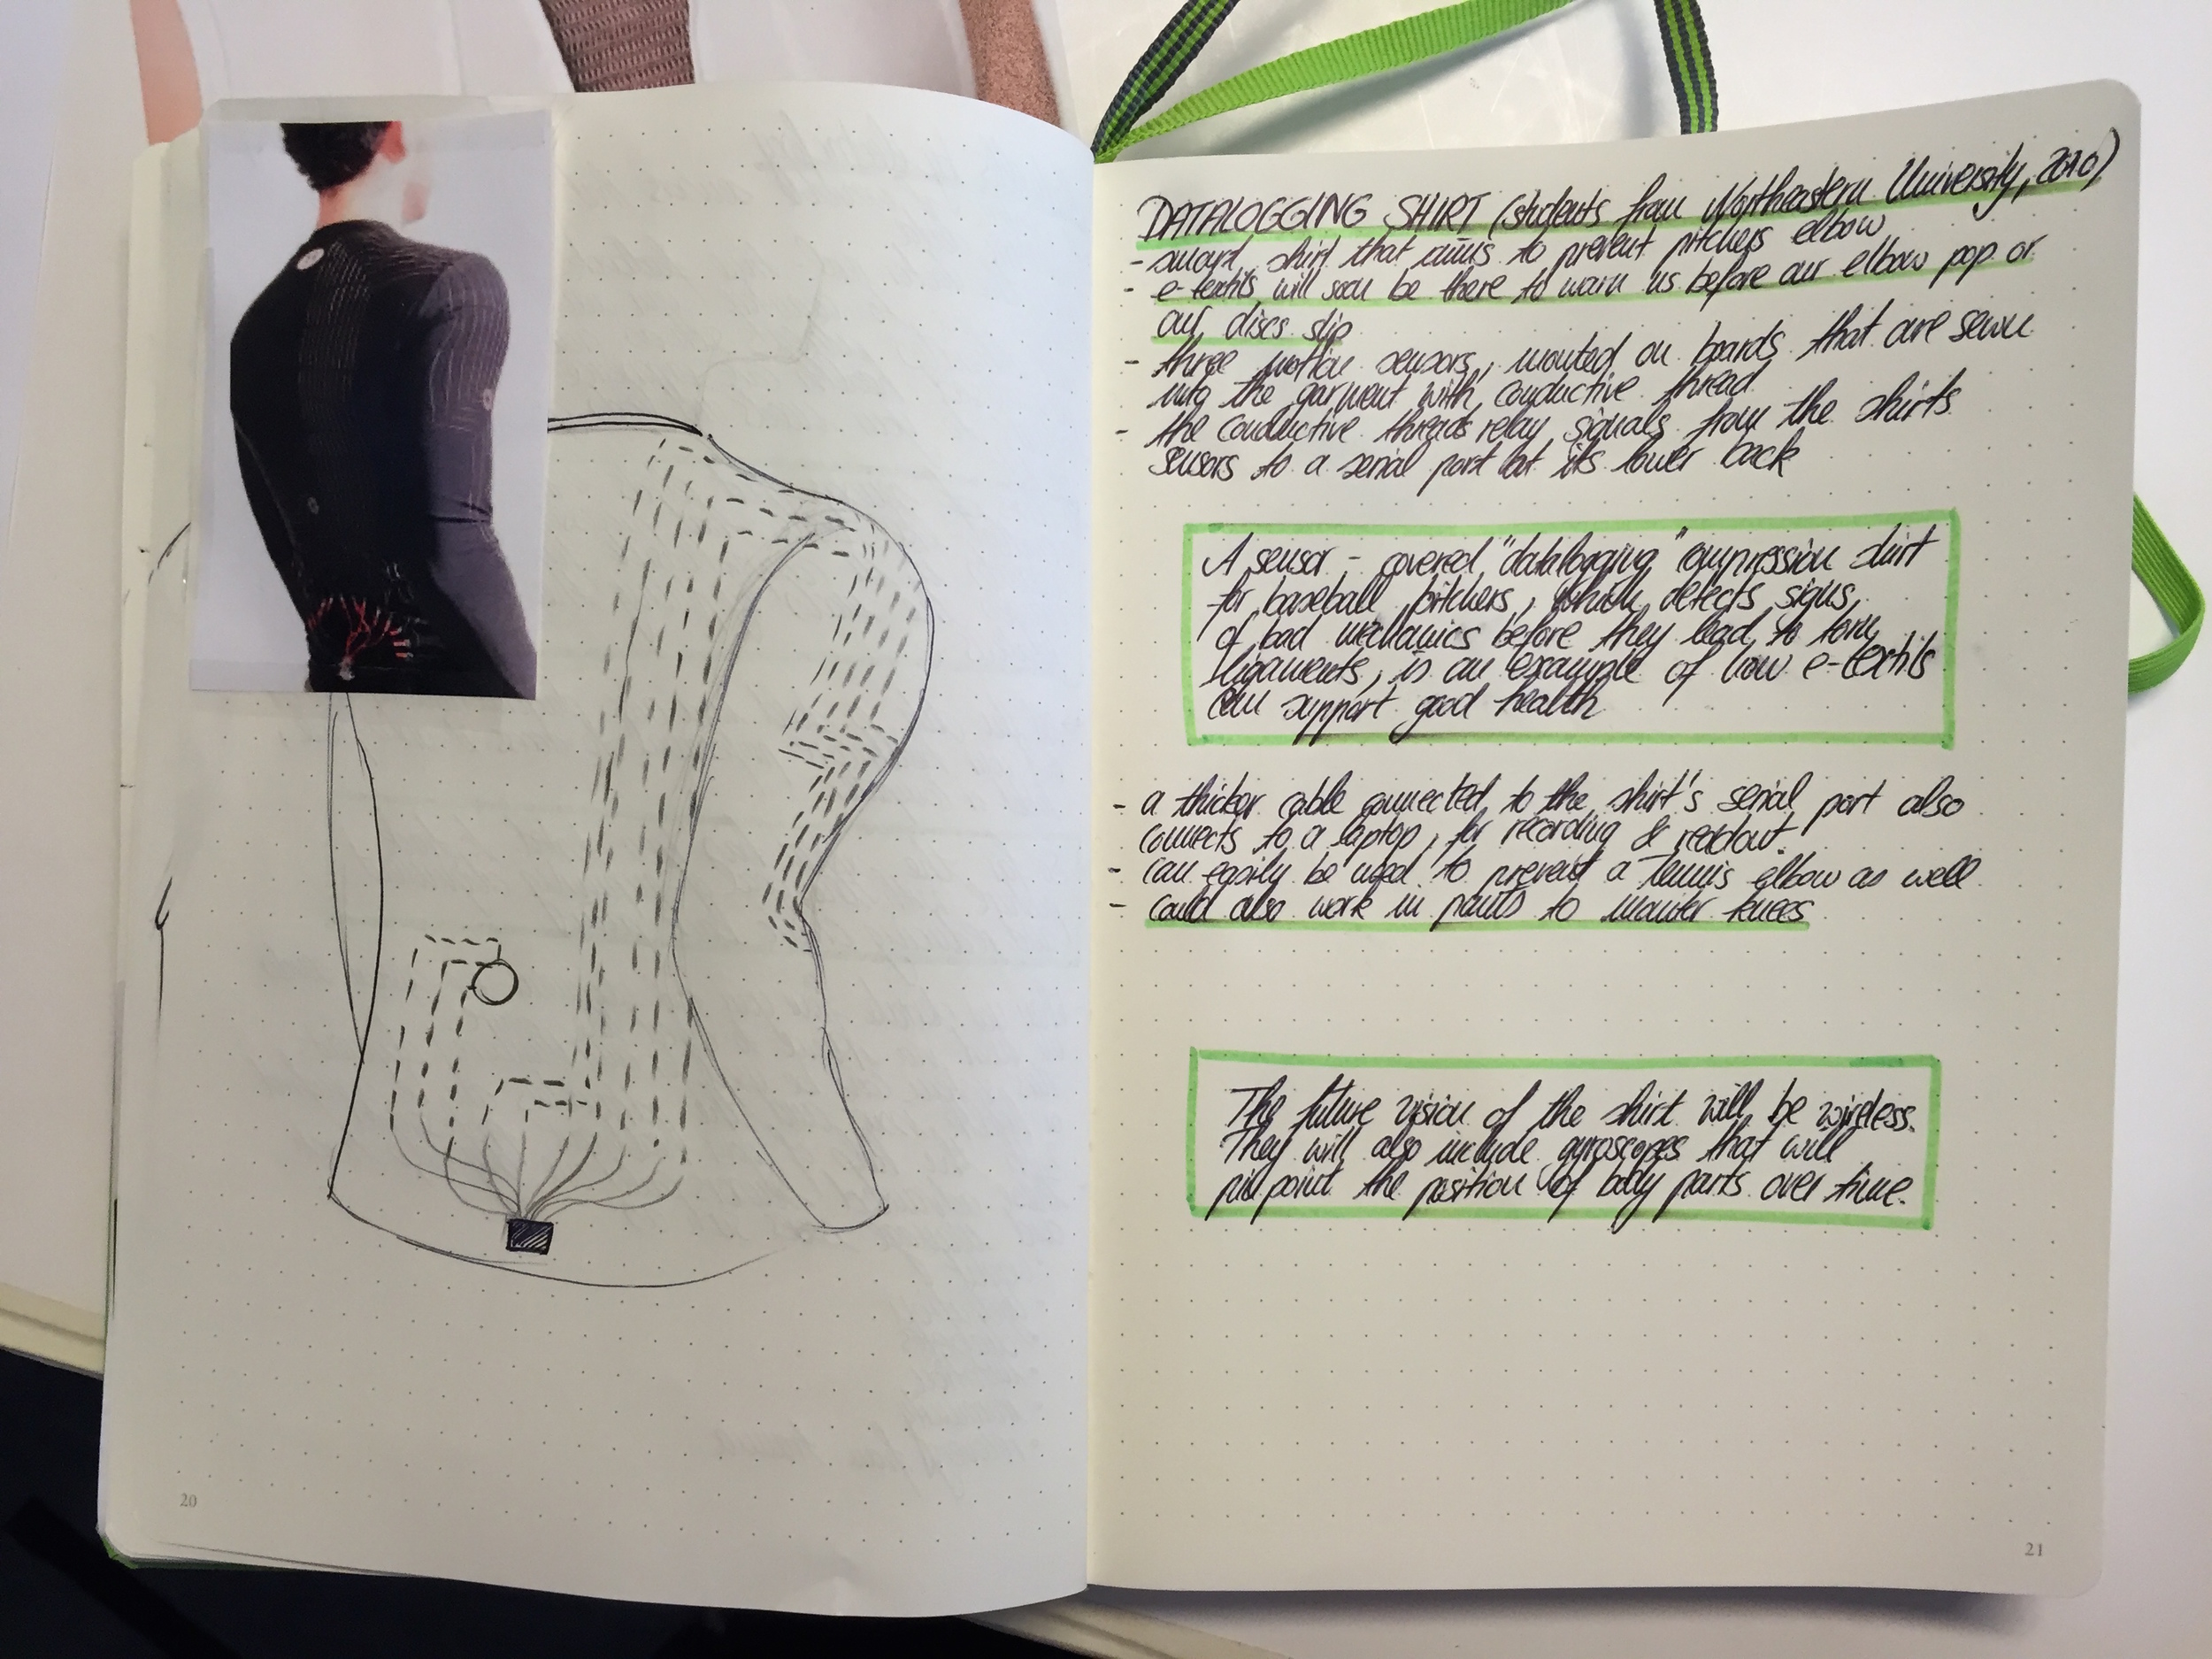 DATALOGGING SHIRT (students from Northeastern University, 2010)
- smart shirt that aims to prevent pitchers elbow
- e-textils will soon be there to warn us before our elbow pop or
our discs slip
- three motion sensors, mounted on boards that are sewn
into the garment with conductive thread
- the conductive threads relay signals from the shirts
sensors to a serial port at its lower back
A sensor - covered "datalogging" compression shirt
for baseball pitchers, which detects signs
of bad mechanics before they lead to torn
ligaments, is an example of how e-textils
can support good health
- a thicker cable connected to the shirt's serial port also
connects to a laptop, for recording & readout.
- can easily be used to prevent a Tennis elbow as well
- could also work in pants to monitor knees
The future vision of the shirt will be wireless.
They will also include gyroscopes that will
pinpoint the position of body parts over time.
20
21